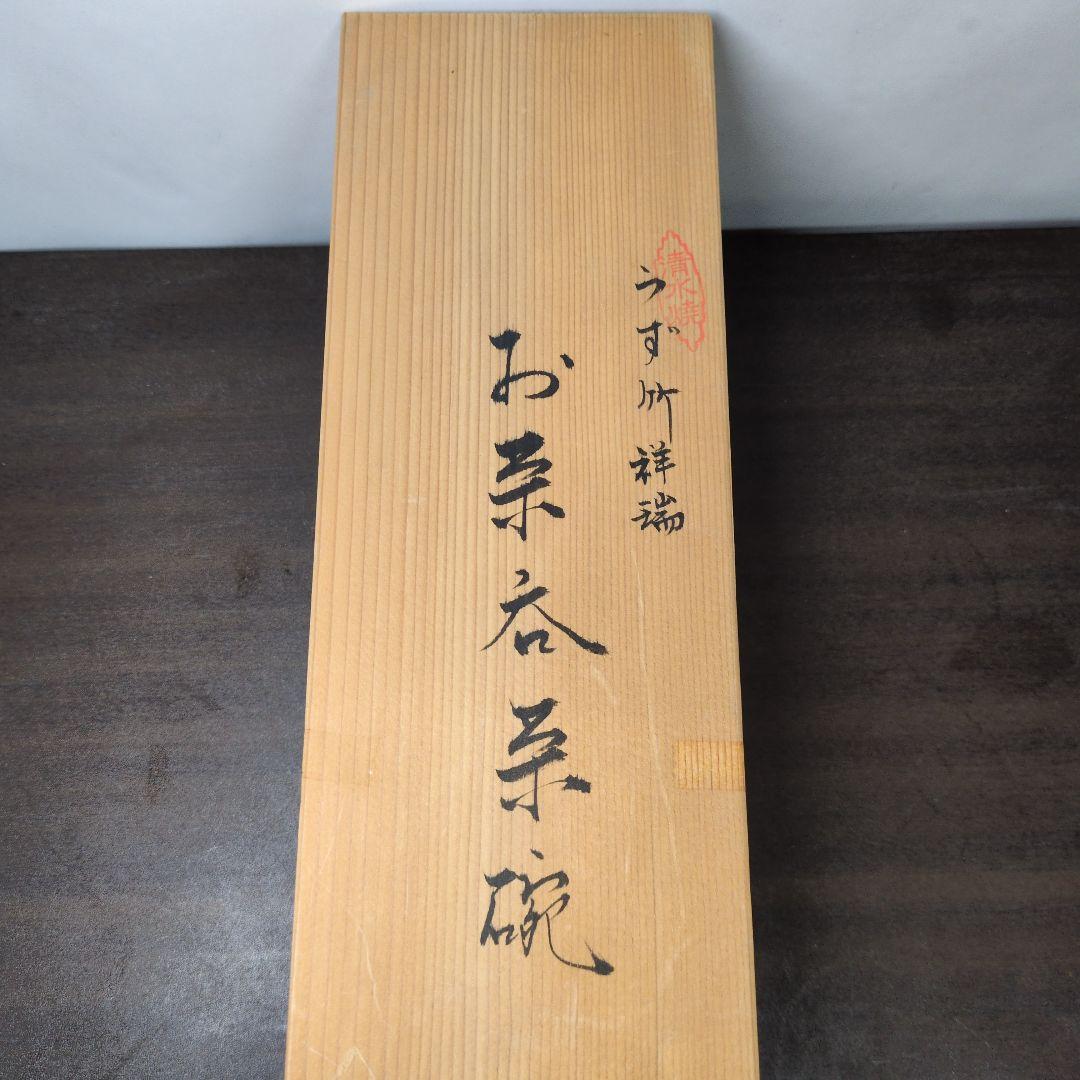 清水焼
うず竹祥瑞
お茶呑茶碗